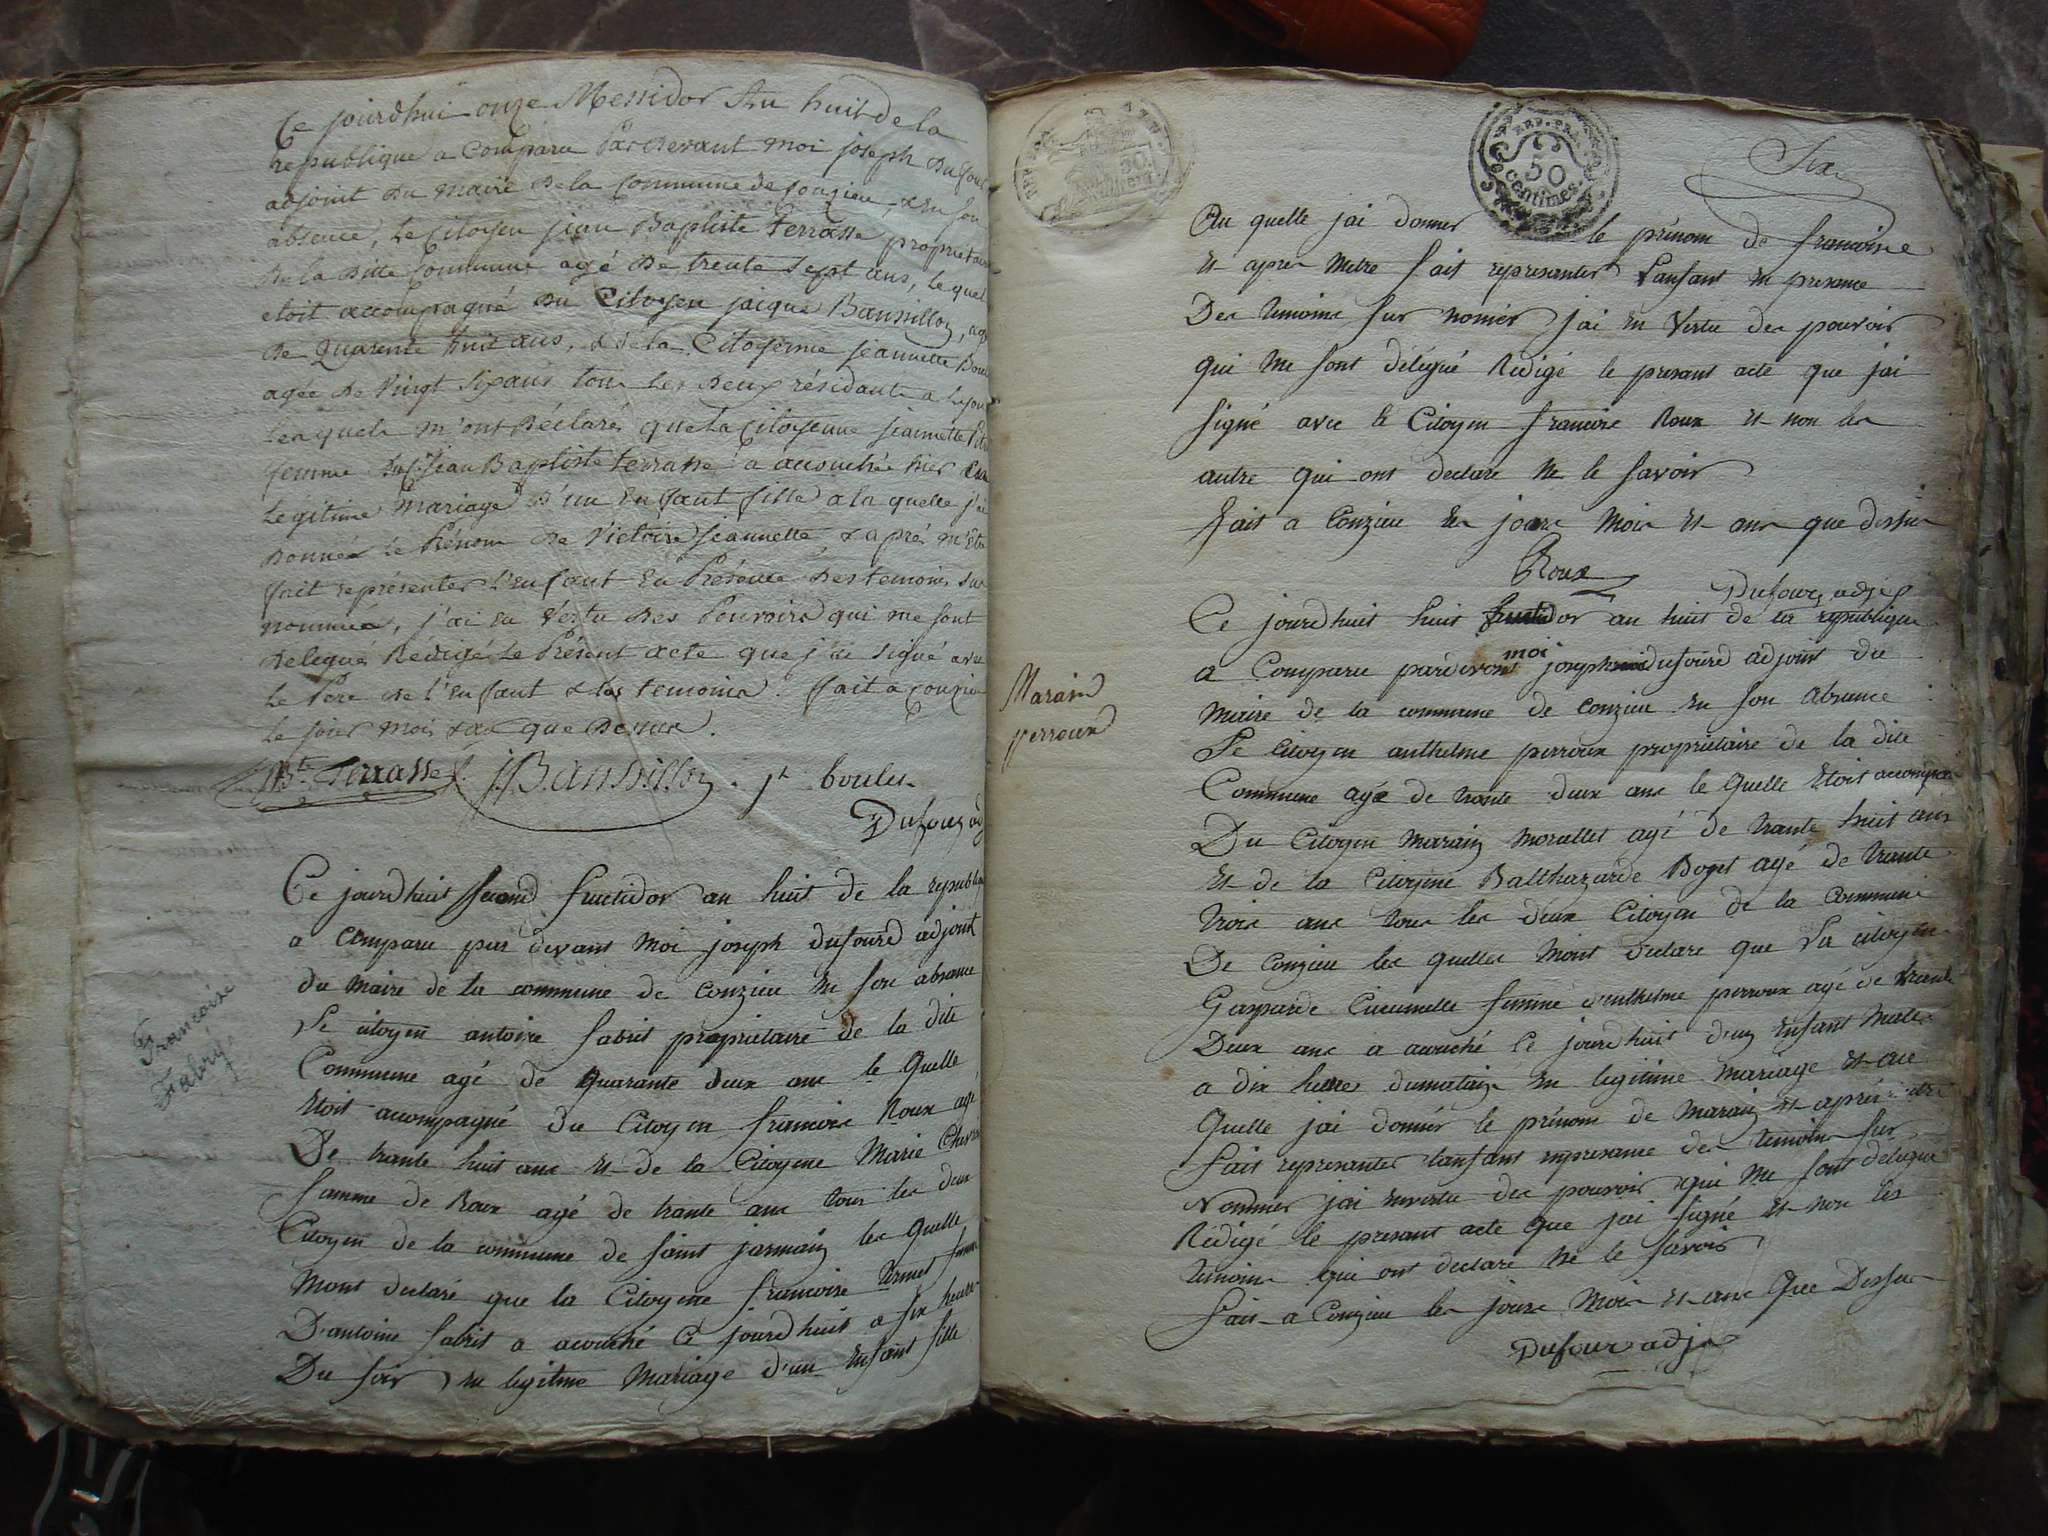 Ce jourd'hui onze Messidor An huit de la
republique a Comparu Par devant moi joseph Dufour
adjoint du maire de la Commune de Conzieu, & en son
absence, Le Citoyen jean Baptiste Terrasse proprietaire
de la ditte Commune agé de trente sept ans, le quel
etoit accompagné du Citoyen jaique Bansillon, agé
de Quarente huit ans, & de la Citoyenne jeannette
agée de Vingt sixans tous les deux résidants a Lyon
Lesquels m'ont Déclarés que la Citoyenne jeannette
femme du Ct jean Baptiste terrasse a accouchée hier
Légitime Mariage D'un Enfant fille a la quelle j'ai
Donnée le Prénom de Victoire Jeannette & aprés m'Etre
fait représenter L'enfant En Présence des temoins sus
nommés, j'ai en Vertu des Pouvoirs qui me sont
delegués Rédigé Le Présent acte que j'ai signé avec
Le Pere de l'enfant & les temoins. Fait a Conzieu
le jour mois & an que Dessus.
J Bte Terrasse. J. Bansillon. jt boulis
Dufour adj
Francoise
Fabry
Ce jourdhuit second fructidor an huit de la republique
a comparu par devant moi joseph dufourd adjoint
du maire de la commune de Conzieu en son absance
Le citoyen antoine fabrit proprietaire de la dite
Commune agé de quarante deux anc le quelle
Etoit acompagné du Citoyen francoise Roux agé
De trante huit anc Et de la Citoyene Marie
famme de Roux agé de trante anc tous les deux
Citoyen de la commune de saint jarmain les quelle
Mont declaré que la Citoyene francoise termet famme
D'antoine fabrit a acouché Ce jourdhuit a six heure
Du soir en legitime Mariage d'un Enfant fille
Six
50
centimes.
Au quelle jai donner le prénom de francoise
Et apres Metre fait represanter Lanfant en presance
Des temoins sur nomér jai en Vertu des pouvoir
qui me sont délégué Rédigé le presant acte que jai
signé avec le Citoyen francoise Roux Et non les
autre qui ont declare Ne le savoir
Fait a Conzieu les jours Mois Et anc que dessus
Roux
Dufour adj
Marain
perroux
Ce jourdhuit huit fructidor an huit de la republique
a Comparu pardevant moi joseph dufourd adjoint du
Maire de la commune de Conzieu en son absance
Le Citoyen anthelme perroux proprietaire de la dite
Commune agé de trante deux anc le Quelle Etoit acompagné
Du Citoyen Marain Morallet agé de trante huit anc
Et de la Citoyene Balthazarde Boget agé de trante
trois anc tous les deux Citoyen de la commune
De Conzieu les quelles Mont declare que La citoyene
Gasparde Cucumelle femme d'enthelme perroux agé de trante
Deux anc a acouché Ce jourdhuit d'un Enfant Male
a dix heures dumatain en legitime mariage Et au
Quelle jai donnér le prénom de Marain Et aprés
fait represanter lanfant enpresance des temoins sur
Nommér jai envertu des pouvoir qui Me sont délégué
Rédigé le presant acte que jai signé Et non les
temoins qui ont declare Ne le savoir
Fait a Conzieu les jours Mois Et anc Que Dessus
Dufour adj